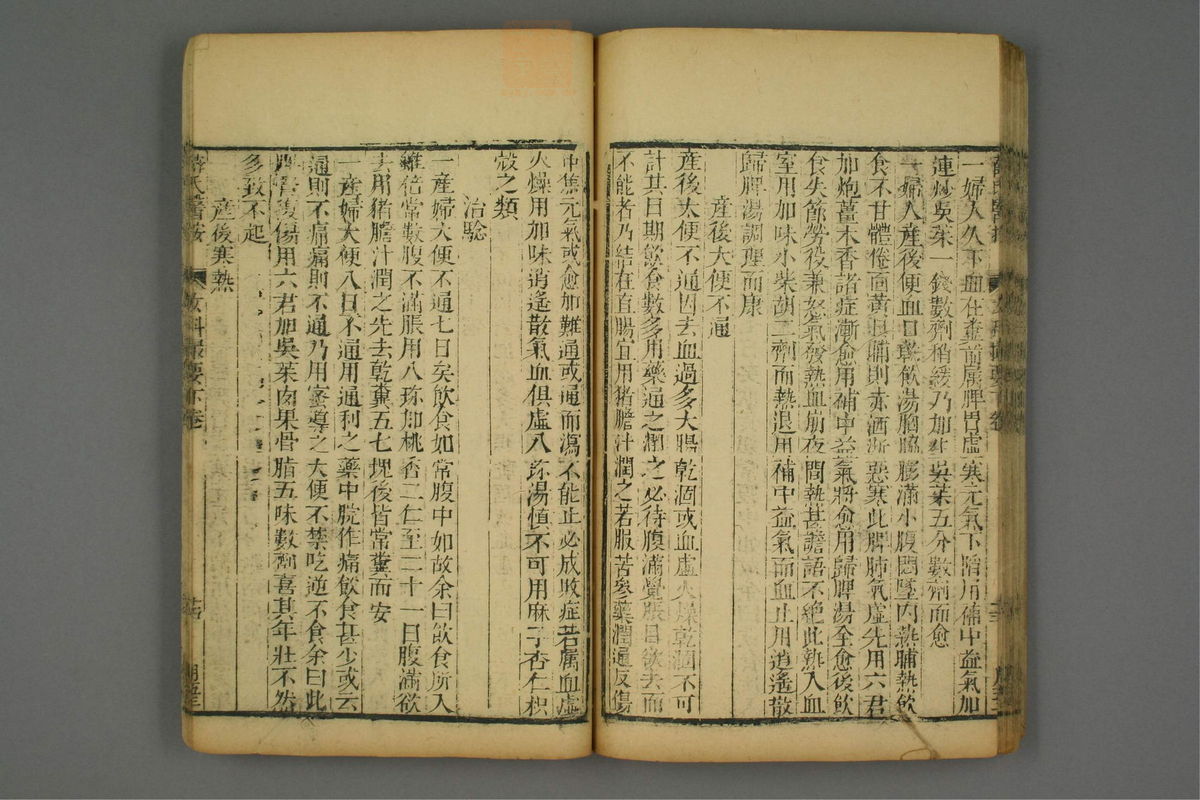 一婦人久下血在糞前屬脾胃虛寒元氣下陷用補中益氣加
連炒吳茱一錢數劑稍緩乃加生吳茱五分數劑而愈
一婦人産後便血口乾飲湯胸脇膨滿小腹悶墜內熱晡熱飲
食不甘體倦面黃日晡則赤洒淅惡寒此脾肺氣虛先用六君
加炮薑木香諸症漸愈用補中益氣將愈用歸脾湯全愈後飲
食失節勞役兼怒氣發熱血崩夜間熱甚譫語不絕此熱入血
室用加味小柴胡二劑而熱退用補中益氣而血止用逍遙散
歸脾湯調理而康
産後大便不通
産後大便不通因去血過多大腸乾涸或血虛火燥乾涸不可
計其日期飲食數多用藥通之潤之必待腹滿覺脹自欲去而
不能者乃結在直腸宜用猪膽汁潤之若服苦參藥潤通反傷
中焦元氣或愈加難通或通而瀉不能止必成敗症若屬血虛
火燥用加味逍遙散氣血俱虛八珍湯慎不可用麻子杏仁枳
殼之類
治驗
一産婦大便不通七日矣飲食如常腹中如故余曰飲食所入
雖倍常數腹不滿脹用八珍加桃杏二仁至二十一日腹滿欲
去用猪膽汁潤之先去乾糞五七塊後皆常糞而安
一産婦大便八日不通用通利之藥中脘作痛飲食甚少或云
通則不痛痛則不通乃用蜜導之大便不禁吃逆不食余曰此
脾腎復傷用六君加吳茱肉果骨脂五味數劑喜其年壯不然
多致不起
産後寒熱
薛氏醫按
女科撮要下卷